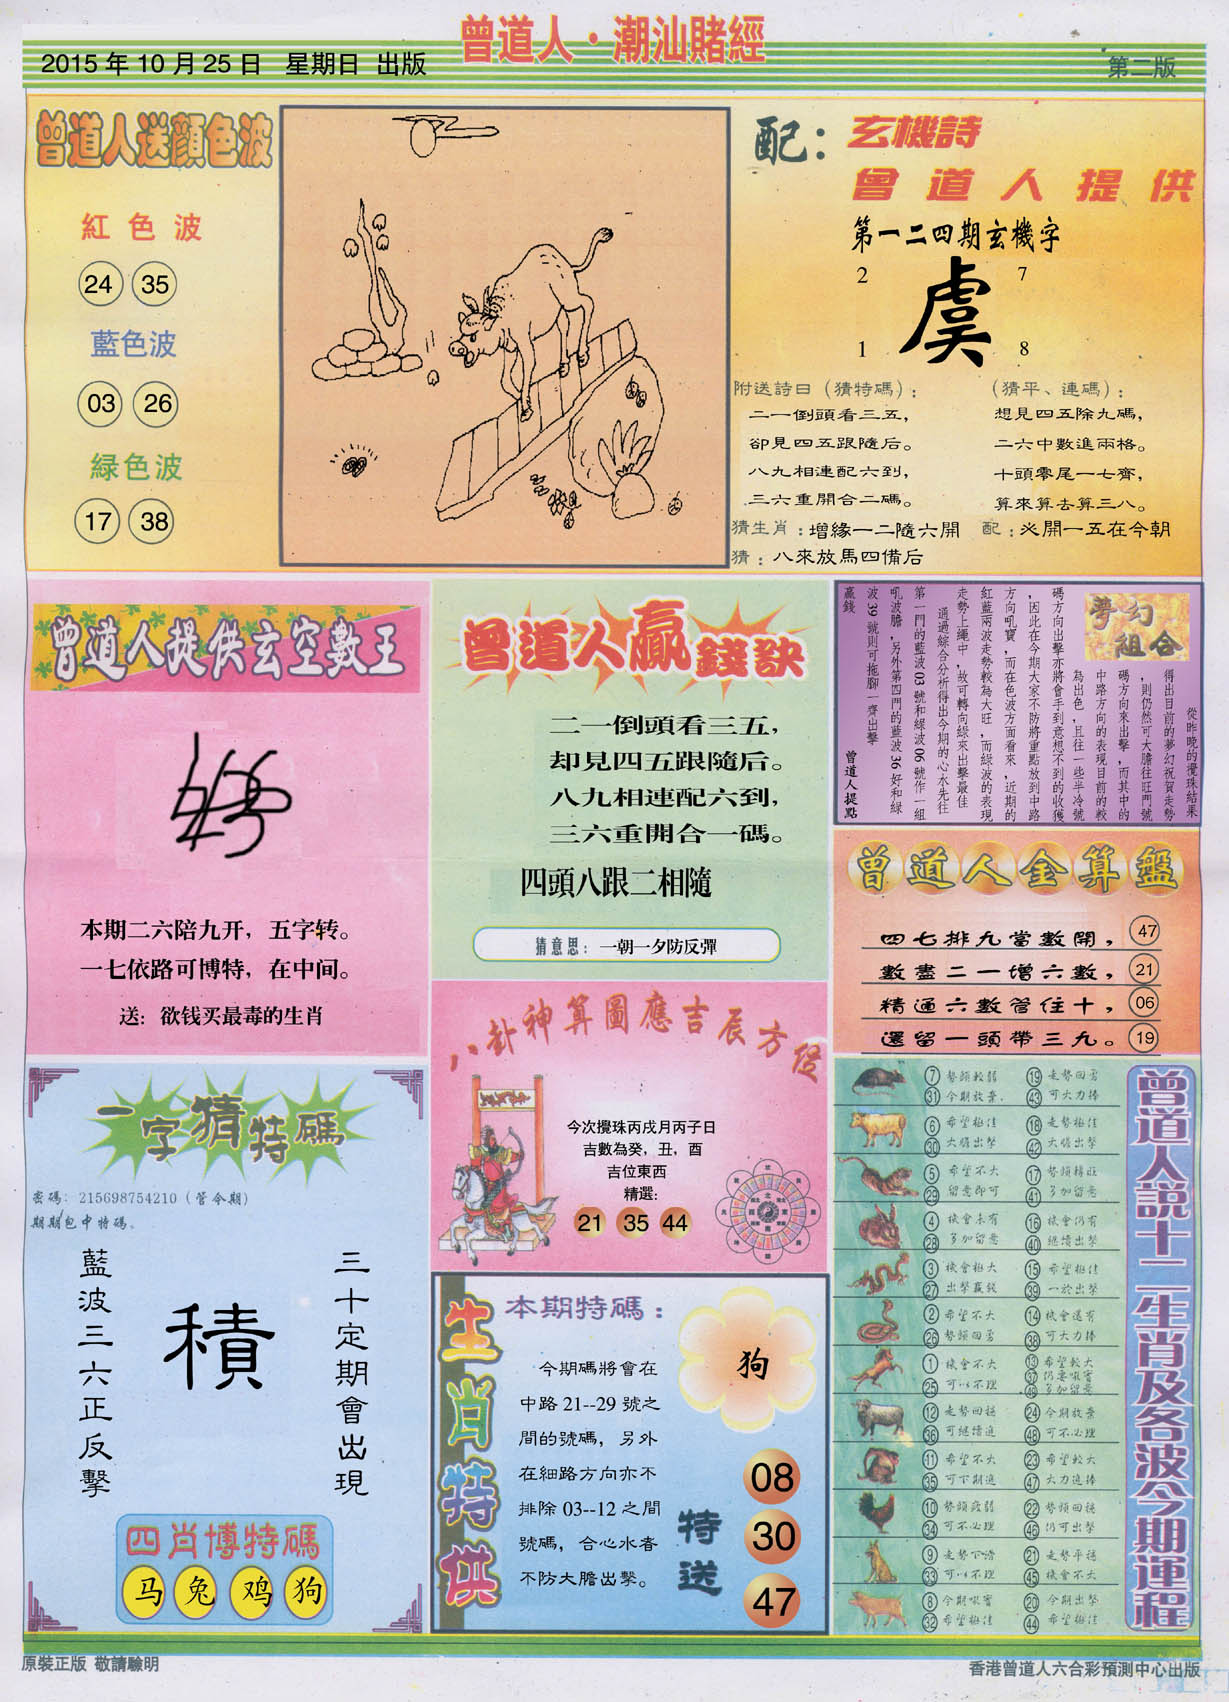 曾道人·潮汕賭經
2015年10月25日 星期日 出版
第二版
曾道人送顏色波
紅色波
24 35
藍色波
03 26
緑色波
17 38
配：
玄機詩
曾道人提供
第一二四期玄機字
2 7
虞
1 8
附送詩曰（猜特碼）：
二一倒頭看三五，
卻見四五跟隨后。
八九相連配六到，
三六重開合二碼。
（猜平、連碼）：
想見四五除九碼，
二六中數進兩格。
十頭零尾一七齊，
算來算去算三八。
猜生肖：增緣一二隨六開
配：必開一五在今朝
猜：八來放馬四備后
曾道人提供玄空數王
本期二六陪九开，五字转。
一七依路可博特，在中间。
送：欲钱买最毒的生肖
曾道人贏錢訣
二一倒頭看三五，
却見四五跟隨后。
八九相連配六到，
三六重開合一碼。
四頭八跟二相隨
猜意思：一朝一夕防反彈
夢幻組合
從昨晚的攪珠結果
得出目前的夢幻祝賀走勢
，則仍然可大膽往旺門號
碼方向來出擊，而其中的
中路方向的表現目前的較
為出色，且往一些半冷號
碼方向出擊亦將會手到意想不到的收獲
，因此在今期大家不防將重點放到中路
方向吼寶，而在色波方面看來，近期的
紅藍兩波走勢較為大旺，而綠波的表現
走勢上繩中，故可轉向綠來出擊最佳
通過綜合分析得出今期的心水先往
第一門的藍波03號和綠波06號作一組
吼波膽，另外第四門的藍波36好和綠
波39號則可拖腳一齊出擊
贏錢
曾道人提點
曾道人金算盤
四七排九當數開， 47
數盡二一增六數， 21
精通六數管住十， 06
還留一頭帶三九。 19
八卦神算圖應吉辰方位
今次攪珠丙戌月丙子日
吉數為癸，丑，酉
吉位東西
精選：
21 35 44
一字猜特碼
密碼：215698754210（管令期）
期期包中特碼。
藍波三六正反擊
積
三十定期會出現
四肖博特碼
马 兔 鸡 狗
生肖特供
本期特碼：
狗
今期碼將會在
中路21--29號之
間的號碼，另外
在細路方向亦不
排除03--12之間
號碼，合心水者
不防大膽出擊。
特送
08
30
47
曾道人説十二生肖及各波今期運程
7 勢頭較弱 19 走勢回勇
31 今期放棄 43 可大力捧
6 希望極佳 18 走勢極佳
30 大膽出擊 42 大膽出擊
5 希望不大 17 勢頭轉旺
29 留意即可 41 多加留意
4 機會未有 16 機會仍有
28 多加留意 40 繼續出擊
3 機會極大 15 希望極佳
27 出擊贏錢 39 一於出擊
2 希望不大 14 機會還有
26 勢頭回勇 38 可大力捧
1 機會不大 13 希望較大
25 可以不理 37 仍要吼實
49 多加留意
12 走勢回穩 24 今期放棄
36 可繼續追 48 可不必理
11 希望不大 23 希望較大
35 可下期追 47 大力追捧
10 勢頭疲弱 22 勢頭回穩
34 可不必理 46 仍可出擊
9 走勢下滑 21 走勢平穩
33 可以不理 45 機會不大
8 今期吼實 20 今期出擊
32 希望極佳 44 希望極佳
原裝正版 敬請驗明
香港曾道人六合彩預測中心出版